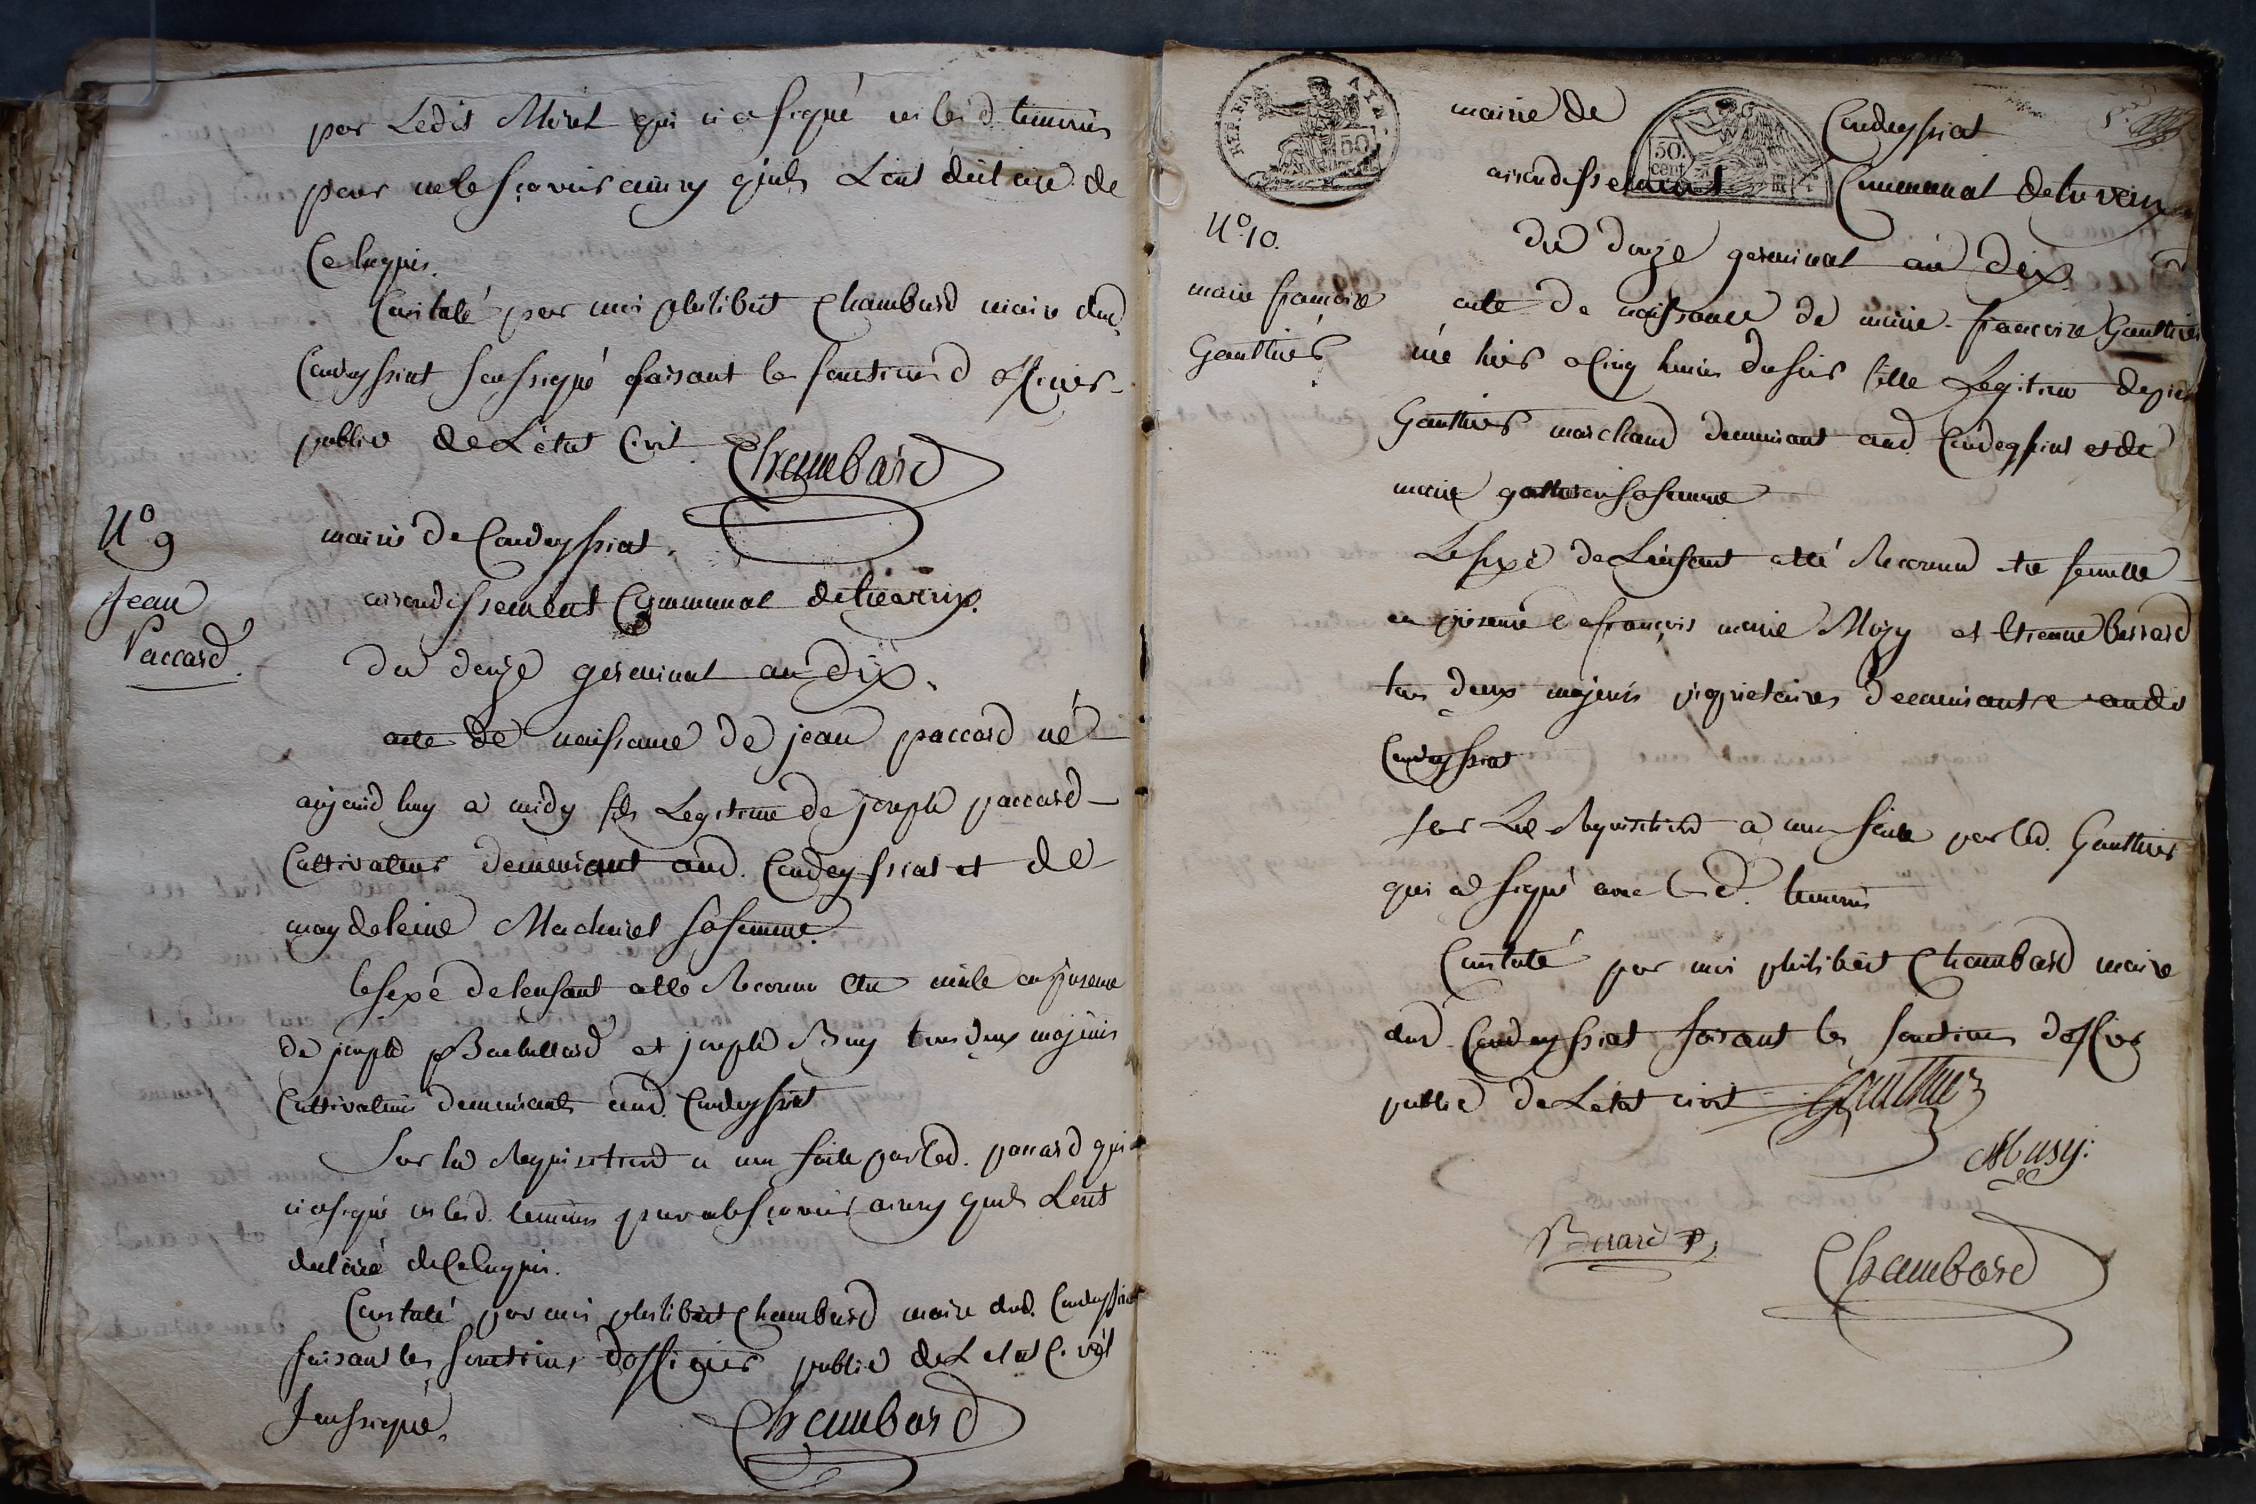 par Ledit Morel qui n'a signé ni lesd. temoins
pour ne le sçavoir ainsy quils L'ont déclaré de
Ce Requis.
Constaté par moi philibert Chambard maire dud.
Condeyssiat soussigné faisant les fonctions d'officier
public de L'état Civil. Chambard
N.o 9
Jean
Paccard
mairie de Condeyssiat.
arrondissement Communal de trevoux.
du douze germinal an dix.
acte de naissance de jean paccard né
aujourd'huy a midy fils Legitime de joseph paccard
Cultivateur demeurant aud. Condeyssiat et de
magdeleine sa femme.
le sexe de lenfant a été Reconnu etre mâle en presence
de joseph et joseph Buy tous deux majeurs
Cultivateurs demeurants aud. Condeyssiat
Sur la Requisition a nous faite par led. paccard qui
n'a signé ni lesd. temoins pour ne le sçavoir ainsy quils L'ont
declaré de Ce Requis.
Constaté par moi philibert Chambard maire dud. Condeyssiat
faisant les fonctions d'officier public de L'etat Civil
soussigné.
Chambard
REP. FRA
50
mairie de Condeyssiat
50.
cent
arrondissement Communal de trevoux
N.o 10.
du douze germinal an dix
marie françoise
Gauthier
acte de naissance de marie françoise Gauthier
née hier a Cinq heures du soir fille Legitime de
Gauthier marchand demeurant aud. Condeyssiat et de
marie sa femme
Le sexe de L'enfant a été Reconnu etre femelle
en presence de françois marie Mozy et Etienne Berrard
tous deux majeurs proprietaires demeurants aud.
Condeyssiat
sur La Requisition a nous faite par led. Gauthier
qui a signé avec lesd. temoins
Constaté par moi philibert Chambard maire
dud. Condeyssiat faisant les fonctions d'officier
public de L'état civil Gauthier
Musy
Berard
Chambard